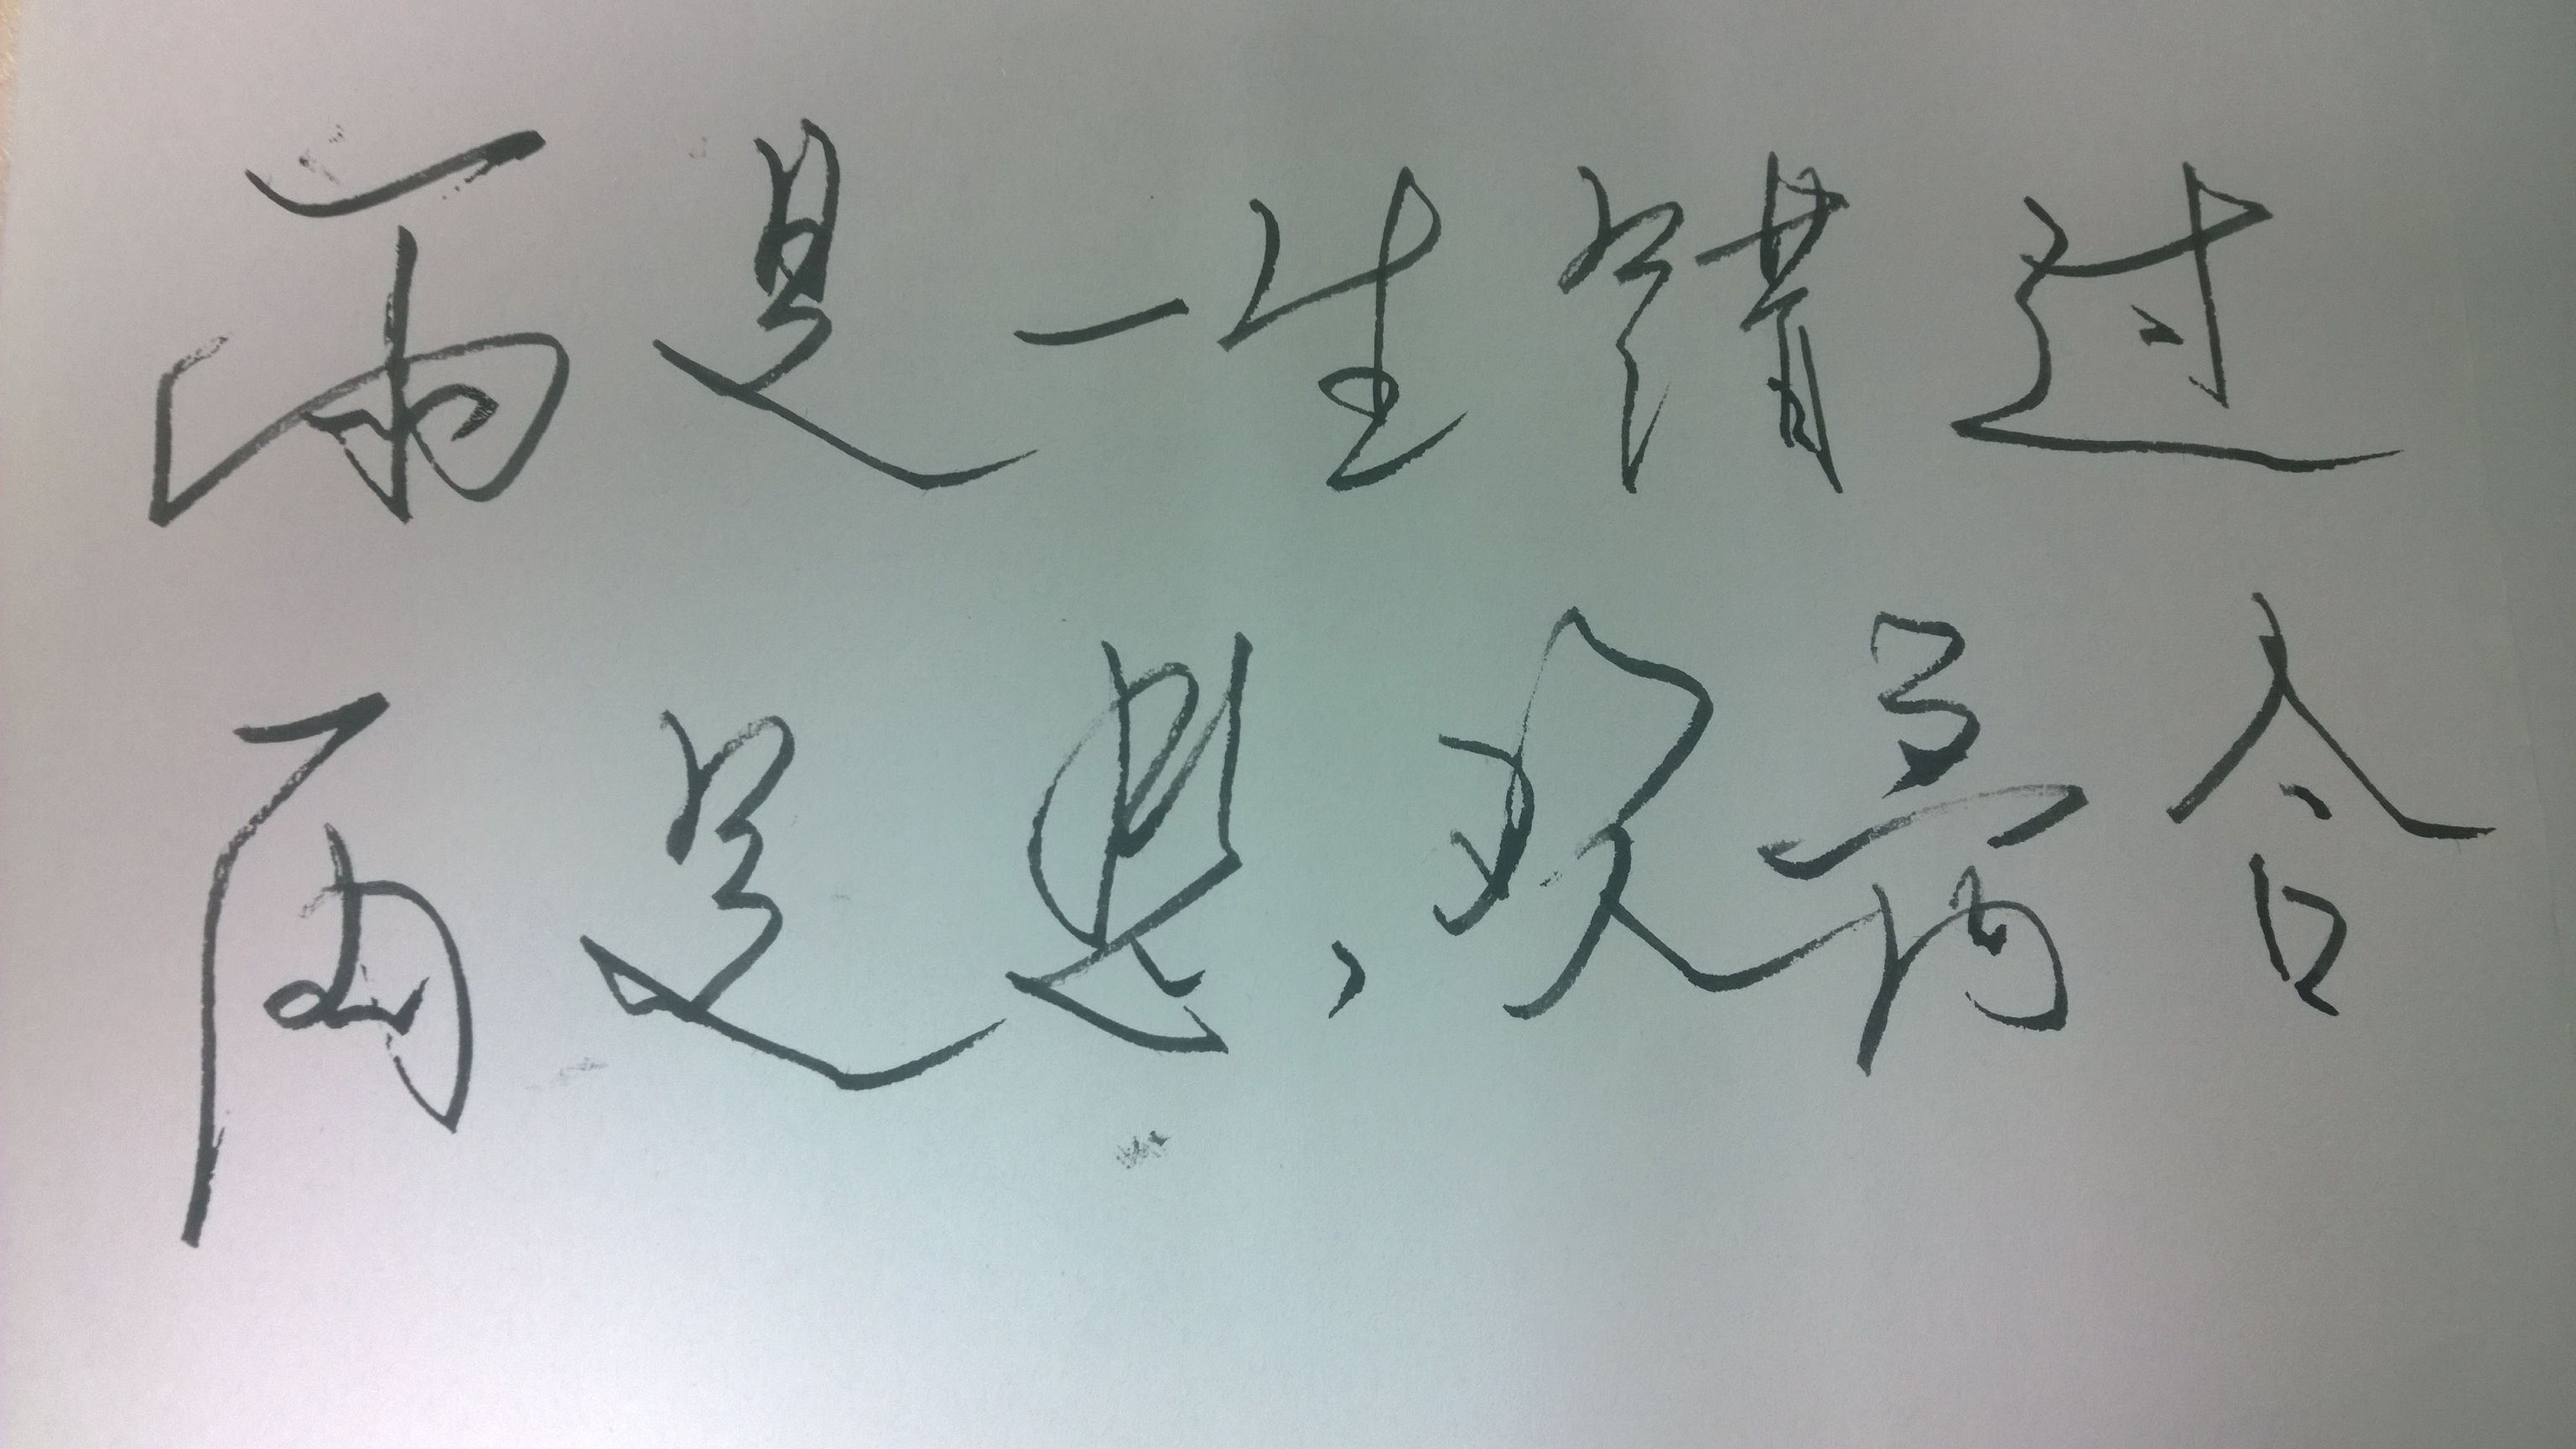 雨是一生错过
雨是悲欢离合